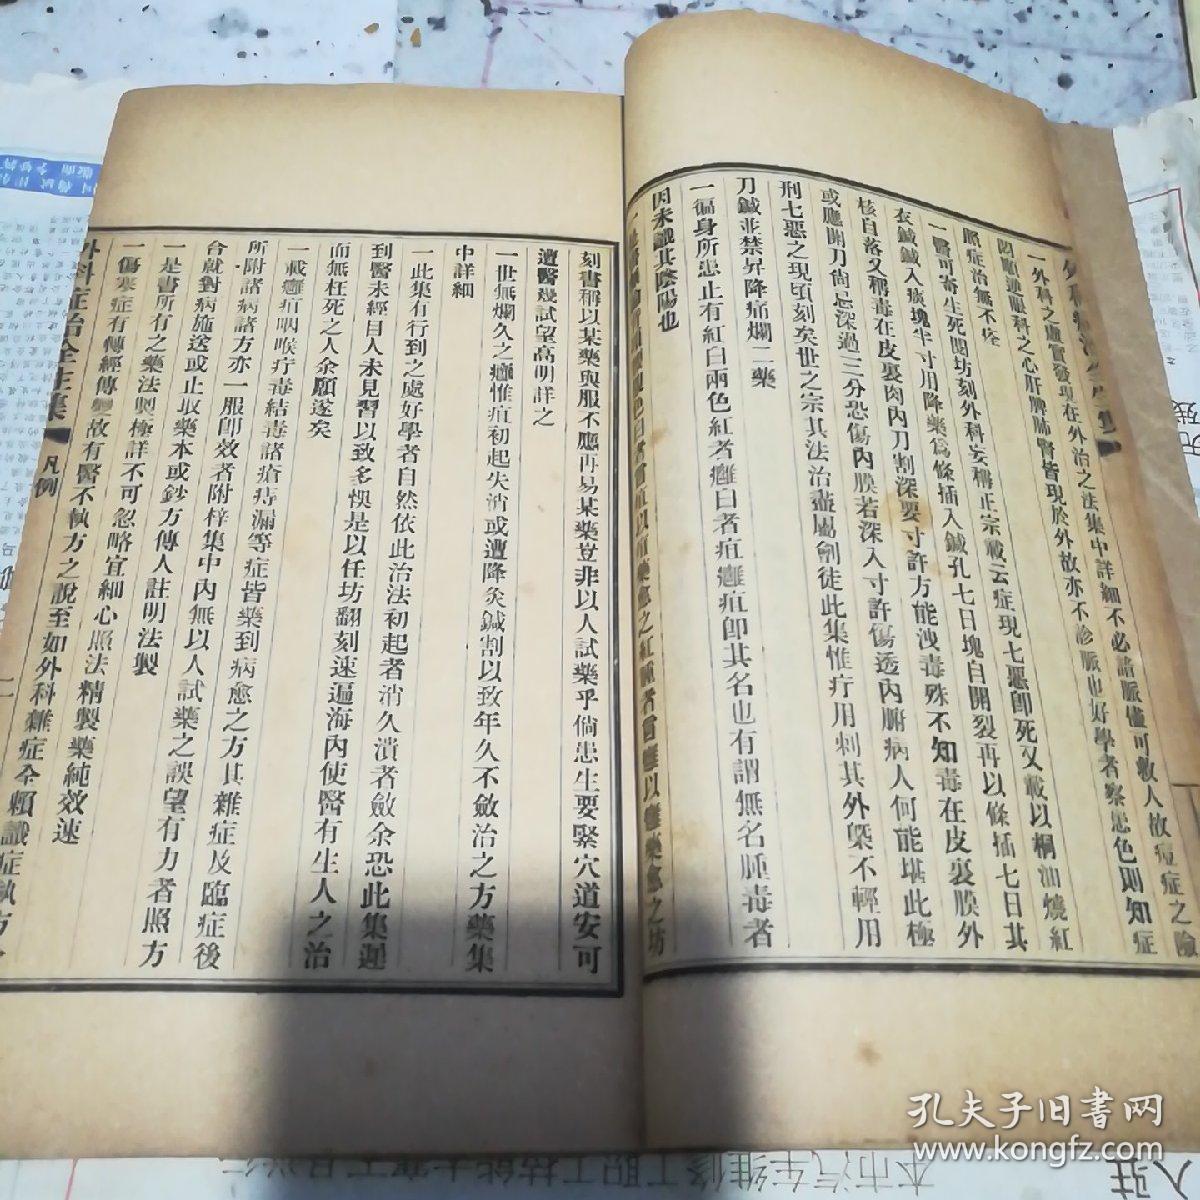 一外科之虛實發現在外治之法集中詳細不必諳脈僅可救人故痘症之險
悶順逆眼科之心肝脾肺腎皆現於外故亦不診脈也好學者察患色則知症
照症治無不痊
一醫可寄生死閱坊刻外科妄稱正宗載云症現七惡即死又載以桐油燒紅
衣鍼鍼入痰塊半寸用降藥為條插入鍼孔七日塊自開裂再以條插七日其
核自落又稱毒在皮裏肉內刀割深要寸許方能洩毒殊不知毒在皮裏膜外
或應開刀尚忌深過三分恐傷內膜若深入寸許傷透內腑病人何能堪此極
刑七惡之現頃刻矣世之宗其法治盡屬劊徒此集惟疔用刺其外槩不輕用
刀鍼並禁昇降痛爛二藥
一徧身所患止有紅白兩色紅者癰白者疽癰疽即其名也有謂無名腫毒者
因未識其陰陽也
刻書稱以某藥與服不應再易某藥豈非以人試藥乎倘患生要緊穴道安可
遭醫幾試望高明詳之
一世無爛久之癰惟疽初起失消或遭降灸鍼割以致年久不斂治之方藥集
中詳細
一此集有行到之處好學者自然依此治法初起者消久潰者斂余恐此集遲
到醫未經目人未見習以致多悞是以任坊翻刻速遍海內使醫有生人之治
而無枉死之人余願遂矣
一載癰疽咽喉疔毒結毒諸瘡痔漏等症皆藥到病愈之方其雜症及臨症後
所附諸病諸方亦一服即效者附梓集中內無以人試藥之誤望有力者照方
合就對病施送或止取藥本或鈔方傳人註明法製
一是書所有之藥法製極詳不可忽略宜細心照法精製藥純效速
一傷寒症有傳經傳變故有醫不執方之說至如外科雜症全賴識症執方
外科症治全生集
凡例
孔夫子旧书网
www.kongfz.com
本市汽车维修工职工技能大赛
入驻